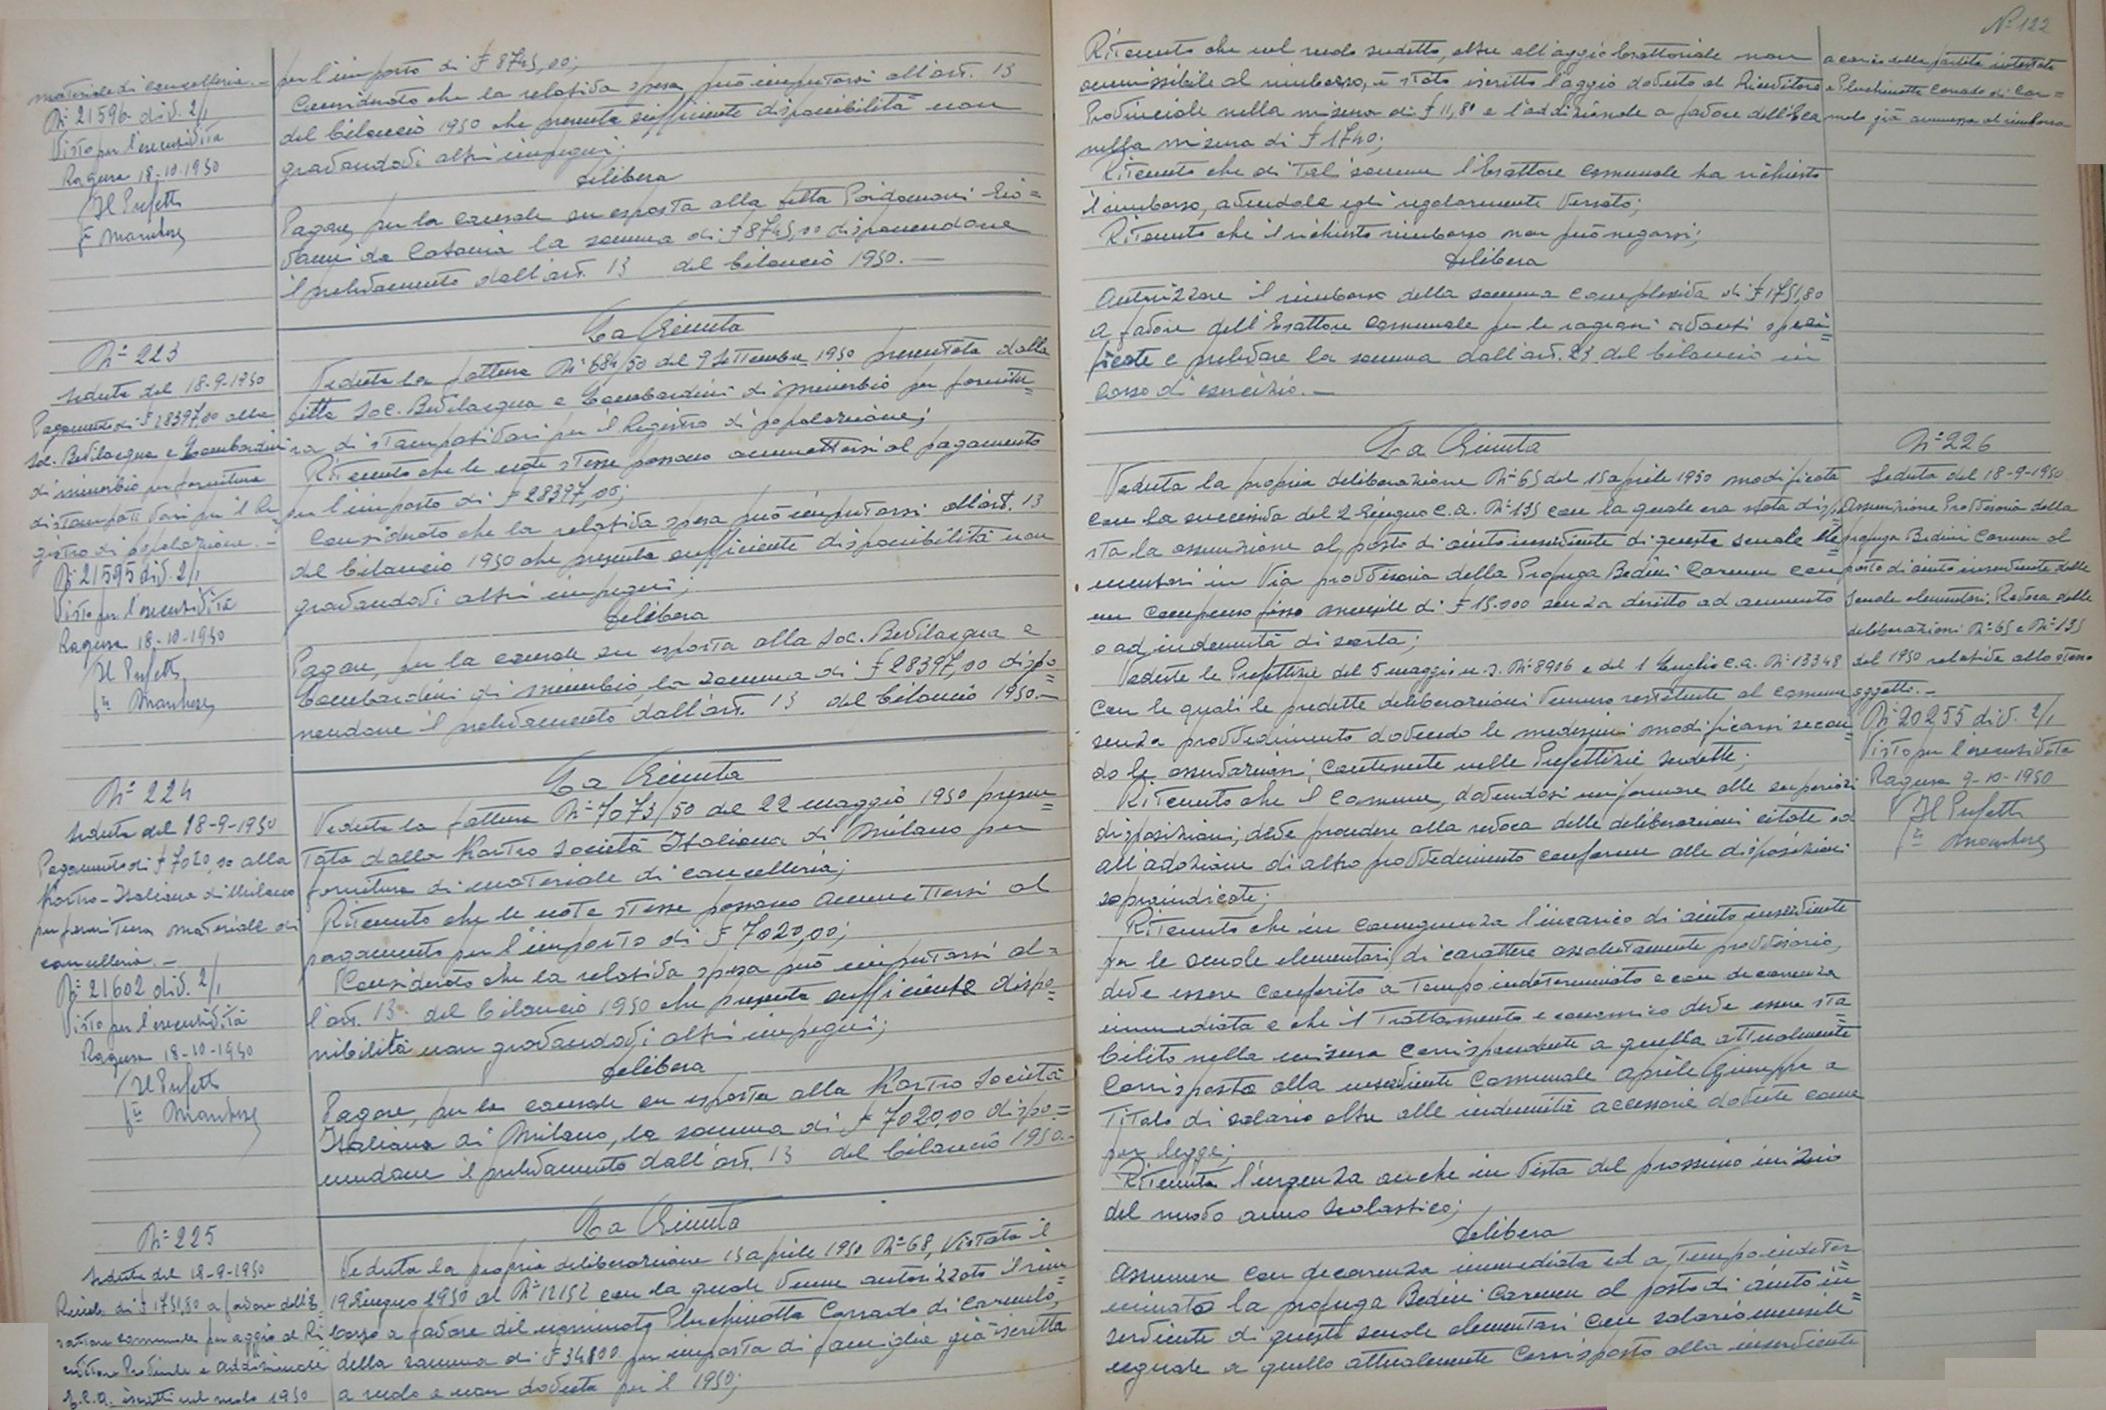 materiale di cancelleria. -
N° 21596 div. 2/1
Visto per l'esecutività
Ragusa 18-10-1950
Il Prefetto
per l'importo di £ 8745,00;
Considerato che la relativa spesa può imputarsi all'art. 13
del bilancio 1950 che presenta sufficiente disponibilità non
gravandovi altri impegni;
delibera
Pagare, per la causale su esposta alla ditta Poidomani Gio=
vanni da Catania la somma di £ 8745,00 disponendone
il prelevamento dall'art. 13 del bilancio 1950. -
N° 223
Seduta del 18-9-1950
Pagamento di £ 28397,00 alla
Soc. Bevilacqua e Lombardini
di Minerbio per fornitura
di stampati vari per il Re=
gistro di popolazione. -
N° 21595 div. 2/1
Visto per l'esecutività
Ragusa 18-10-1950
Il Prefetto
La Giunta
Veduta la fattura N° 684/50 del 9 Settembre 1950 presentata dalla
ditta Soc. Bevilacqua e Lombardini di Minerbio per fornitu=
ra di stampati vari per il Registro di popolazione;
Ritenuto che le note stesse possano ammettersi al pagamento
per l'importo di £ 28397,00;
Considerato che la relativa spesa può imputarsi all'art. 13
del bilancio 1950 che presenta sufficiente disponibilità non
gravandovi altri impegni;
delibera
Pagare, per la causale su esposta alla Soc. Bevilacqua e
Lombardini di Minerbio, la somma di £ 28397,00 dispo=
nendone il prelevamento dall'art. 13 del bilancio 1950. -
N° 224
Seduta del 18-9-1950
Pagamento di £ 7020,00 alla
Kartro-Italiana di Milano
per fornitura materiale di
cancelleria. -
N° 21602 div. 2/1
Visto per l'esecutività
Ragusa 18-10-1950
Il Prefetto
La Giunta
Veduta la fattura N° 7073/50 del 22 maggio 1950 presen=
tata dalla Kartro Società Italiana di Milano per
fornitura di materiale di cancelleria;
Ritenuto che le note stesse possano ammettersi al
pagamento per l'importo di £ 7020,00;
Considerato che la relativa spesa può imputarsi al=
l'art. 13 del bilancio 1950 che presenta sufficiente dispo=
nibilità non gravandovi altri impegni;
delibera
Pagare, per la causale su esposta alla Kartro Società
Italiana di Milano, la somma di £ 7020,00 dispo=
nendone il prelevamento dall'art. 13 del bilancio 1950. -
N° 225
Seduta del 18-9-1950
di £ 1751,80 a favore dell'E=
sattore comunale per aggio al Ri=
cevitore Provinciale e addizionale
E.C.A. iscritti nel ruolo 1950
La Giunta
Veduta la propria deliberazione 15 aprile 1950 N° 68, vistata il
19 Giugno 1950 al N° 12152 con la quale venne autorizzato il rim=
borso a favore del nominato Pluchinotta Corrado di Carmelo,
della somma di £ 34800 per imposta di famiglia già iscritta
a ruolo e non dovuta per il 1950;
N° 122
Ritenuto che nel ruolo suddetto, oltre all'aggio esattoriale non
ammissibile al rimborso, è stato iscritto l'aggio dovuto al Ricevitore
Provinciale nella misura di £ 11,80 e l'addizionale a favore dell'Eca
nella misura di £ 1740;
Ritenuto che di tali somme l'Esattore comunale ha richiesto
il rimborso, avendole egli regolarmente versato;
Ritenuto che il richiesto rimborso non può negarsi;
delibera
Autorizzare il rimborso della somma complessiva di £ 1751,80
a favore dell'Esattore comunale per le ragioni avanti speci=
ficate e prelevare la somma dall'art. 23 del bilancio in
corso di esercizio. -
a carico della partita intestata
a Pluchinotta Corrado di Car=
melo già ammessa al rimborso
La Giunta
Veduta la propria deliberazione N° 65 del 15 aprile 1950 modificata
con la successiva del 2 Giugno c.a. N° 135 con la quale era stata dispo=
sta la assunzione al posto di aiuto inserviente di queste scuole ele=
mentari in via provvisoria della Profuga Bedini Carmen con
un compenso fisso mensile di £ 15.000 senza diritto ad aumento
o ad indennità di sorta;
Vedute le Prefettizie del 5 maggio u.s. N° 8906 e del 1 Luglio c.a. N° 13348
con le quali le predette deliberazioni vennero restituite al comune
senza provvedimento dovendo le medesime modificarsi secon=
do le osservazioni contenute nelle Prefettizie suddette;
Ritenuto che il Comune, dovendosi uniformare alle superiori
disposizioni, deve procedere alla revoca delle deliberazioni citate ed
all'adozione di altro provvedimento conforme alle disposizioni
sopraindicate;
Ritenuto che in conseguenza l'incarico di aiuto inserviente
per le scuole elementari, di carattere assolutamente provvisorio,
deve essere conferito a tempo indeterminato e con decorrenza
immediata e che il trattamento economico deve essere sta=
bilito nella misura corrispondente a quella attualmente
corrisposta alla inserviente Comunale Aprile Giuseppa a
titolo di salario oltre alle indennità accessorie dovute come
per legge;
Ritenuta l'urgenza anche in vista del prossimo inizio
del nuovo anno scolastico;
delibera
Assumere con decorrenza immediata ed a tempo indeter=
minato la profuga Bedini Carmen al posto di aiuto in=
serviente di queste scuole elementari con salario mensile
uguale a quello attualmente corrisposto alla inserviente
N° 226
Seduta del 18-9-1950
Assunzione Provvisoria della
profuga Bedini Carmen al
posto di aiuto inserviente delle
scuole elementari. Revoca delle
deliberazioni N° 65 e N° 135
del 1950 relative allo stesso
oggetto. -
N° 20255 div. 2/1
Visto per l'esecutività
Ragusa 9-10-1950
Il Prefetto